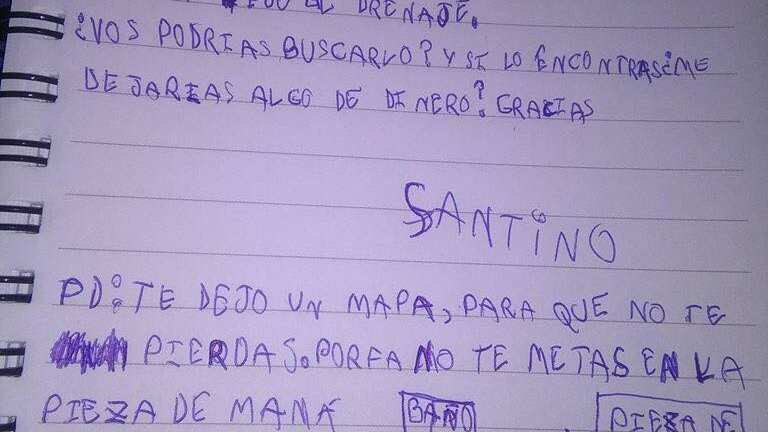 EL DRENAJE.
¿VOS PODRIAS BUSCARLO? Y SI LO ENCONTRAS ¿ME
DEJARIAS ALGO DE DINERO? GRACIAS
SANTINO
PD: TE DEJO UN MAPA, PARA QUE NO TE
PIERDAS. PORFA NO TE METAS EN LA
PIEZA DE MAMÁ BAÑO PIEZA DE